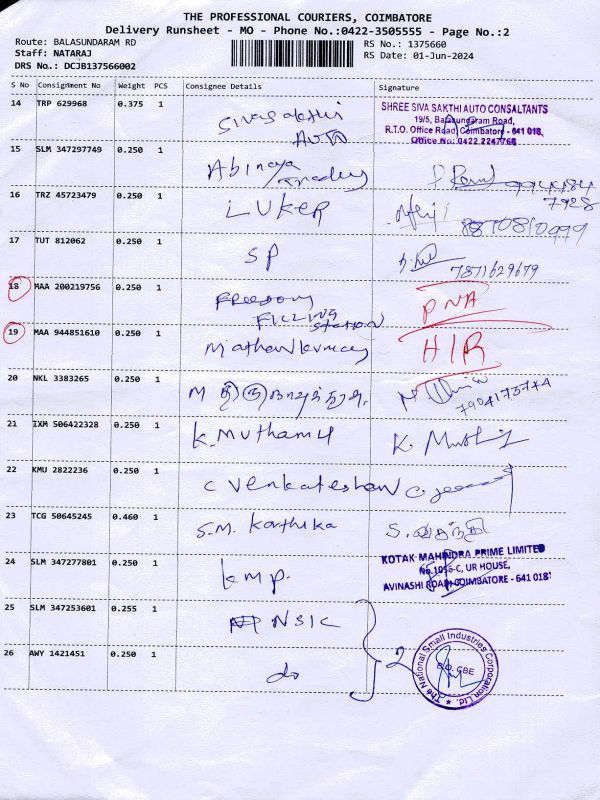 THE PROFESSIONAL COURIERS, COIMBATORE
Delivery Runsheet - MO - Phone No.:0422-3505555 - Page No.:2
Route: BALASUNDARAM RD
RS No.: 1375660
Staff: NATARAJ
RS Date: 01-Jun-2024
DRS No.: DCJB137566002
S No Consignment No Weight PCS Consignee Details Signature
14 TRP 629968 0.375 1 Sivasakthi Auto
SHREE SIVA SAKTHI AUTO CONSALTANTS
19/5, Balasundaram Road,
R.T.O. Office Road, Coimbatore - 641 018.
Office No: 0422.2247766
15 SLM 347297749 0.250 1 Abinaya
16 TRZ 45723479 0.250 1 LUKER
8870810999
17 TUT 812062 0.250 1 SP
7871629679
18 MAA 200219756 0.250 1 Freedom Filling Station PNA
19 MAA 944851610 0.250 1 HIR
20 NKL 3383265 0.250 1 M
7904173774
21 IXM 506422328 0.250 1 K. Muthamil K.
22 KMU 2822236 0.250 1 C Venkateshan
23 TCG 50645245 0.460 1 S.M. Karthika S.
24 SLM 347277801 0.250 1 KMP.
KOTAK MAHINDRA PRIME LIMITED
No.1056-C, UR HOUSE,
AVINASHI ROAD, COIMBATORE - 641 018
25 SLM 347253601 0.255 1 NSIC
26 AWY 1421451 0.250 1 do
2
The National Small Industries Corporation Ltd.
B.O. CBE